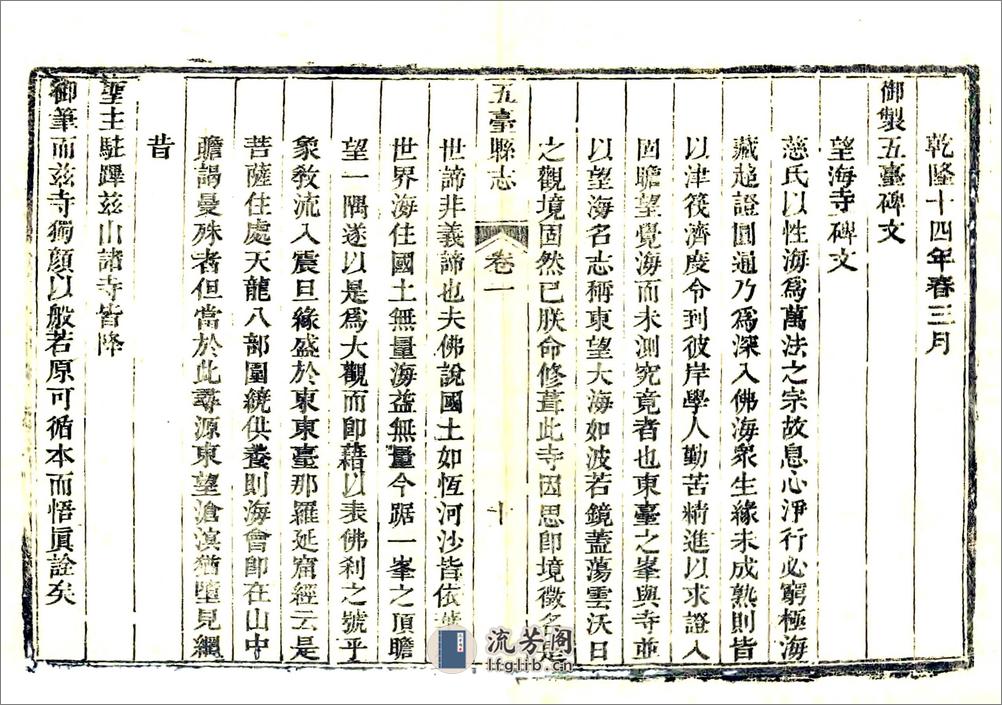 乾隆十四年春三月
御製五臺碑文
望海寺碑文
慈氏以性海爲萬法之宗故息心淨行必窮極海
藏超證圓通乃爲深入佛海衆生緣未成熟則皆
以津筏濟度令到彼岸學人勤苦精進以求證入
因瞻望覺海而未測究竟者也東臺之峯與寺並
以望海名志稱東望大海如波若鏡蓋蕩雲沃日
之觀境固然已朕命修葺此寺因思即境徵名
五臺縣志
卷一
十
世諦非義諦也夫佛說國土如恆河沙皆依
世界海住國土無量海益無量今踞一峯之頂瞻
望一隅遂以是爲大觀而即藉以表佛刹之號乎
象教流入震旦緣盛於東東臺那羅延窟經云是
菩薩住處天龍八部圍繞供養則海會即在山中
瞻謁曼殊者但當於此尋源東望滄溟猶墮見網
昔
聖主駐蹕茲山諸寺皆降
御筆而茲寺獨顏以般若原可循本而悟眞詮矣
流芳阁
lfglib.cn